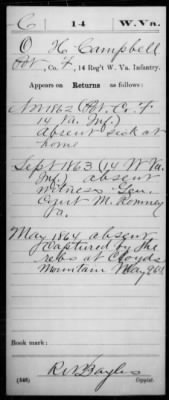 C | 14 | W. Va.
O. H. Campbell
Pvt, Co. F, 14 Reg't W. Va. Infantry.
Appears on
Returns as follows:
Nov 1862 (Pvt. Co. F
14 Va. Inf.)
Absent sick at
home
Sept 1863 (14 W Va.
Inf.) absent
witness Gen.
Court M. Romney
Va.
May 1864 absent
captured by the
rebs at Cloyds
Mountain May 9th
Book mark:
R N Bayles
(546)
Copyist.